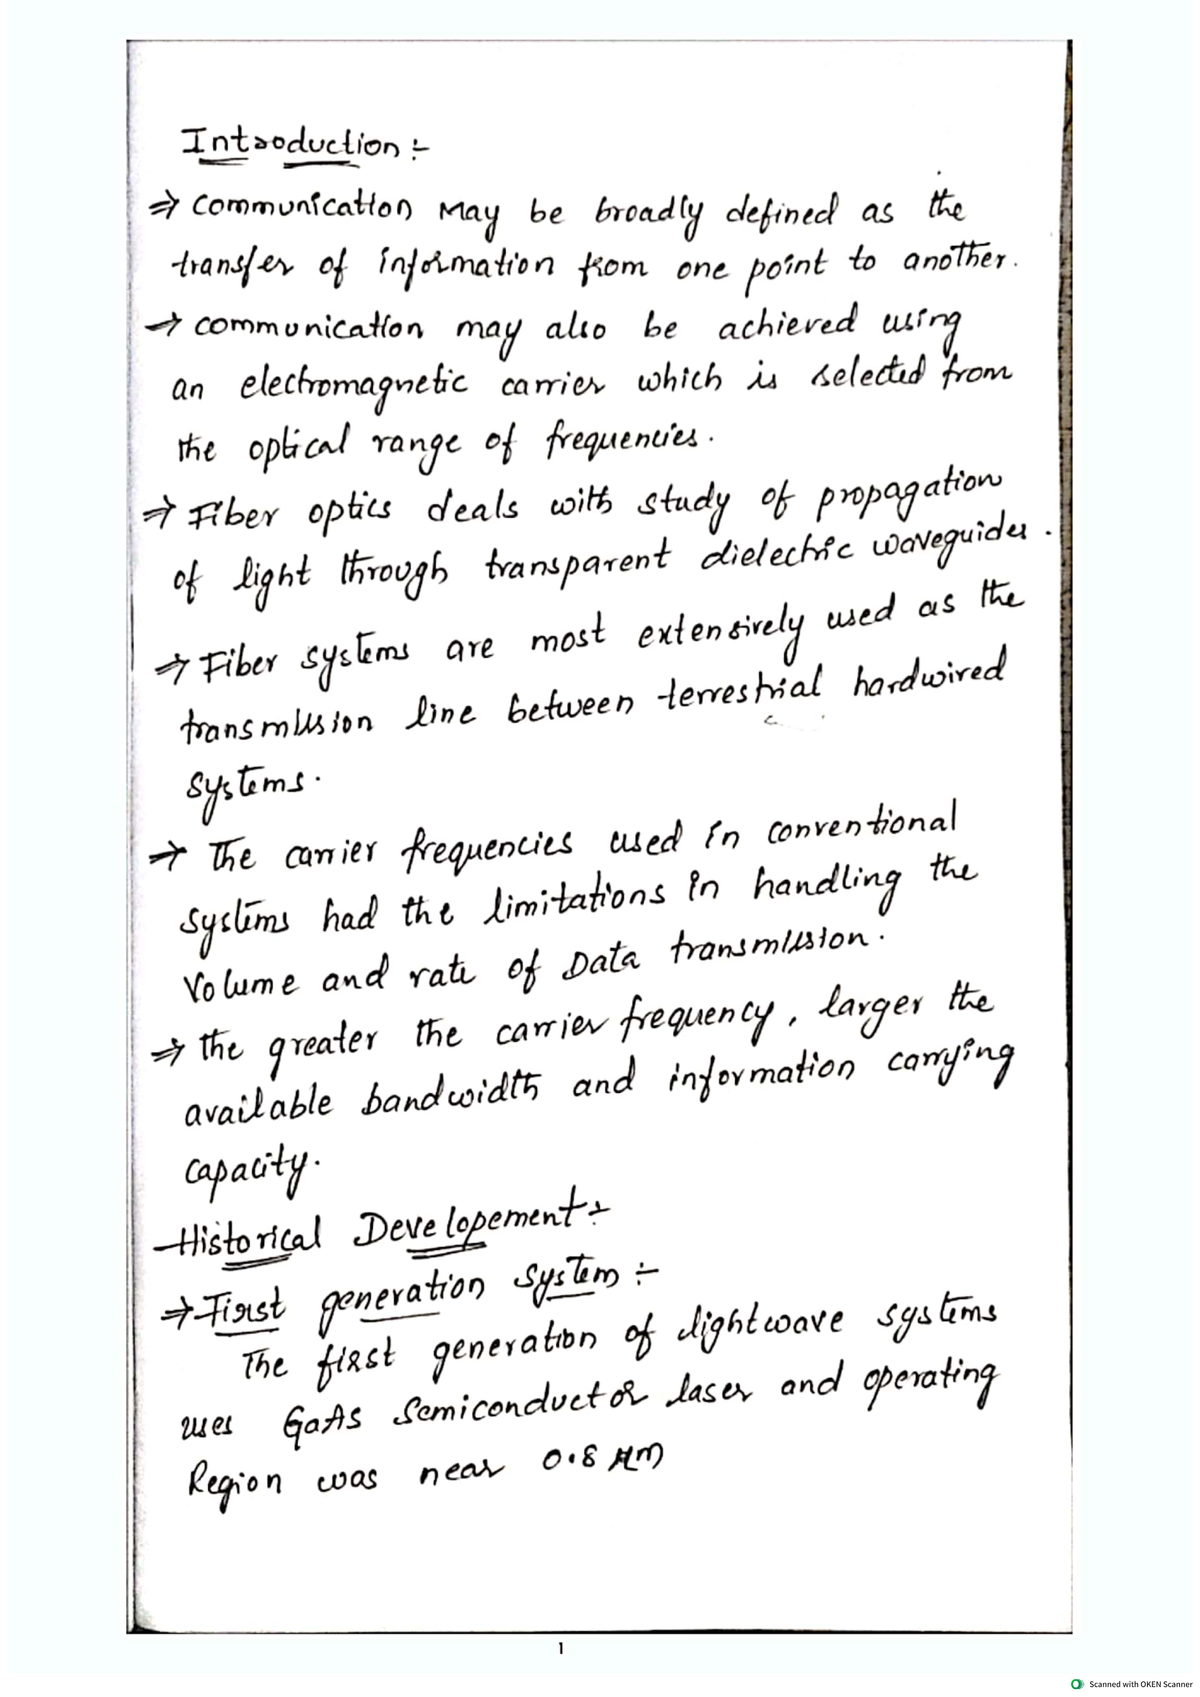 Introduction :-
⇒ communication may be broadly defined as the
transfer of information from one point to another.
→ communication may also be achieved using
an electromagnetic carrier which is selected from
the optical range of frequencies.
⇒ Fiber optics deals with study of propagation
of light through transparent dielectric waveguides.
⇒ Fiber systems are most extensively used as the
transmission line between terrestrial hardwired
systems.
→ The carrier frequencies used in conventional
systems had the limitations in handling the
Volume and rate of Data transmission.
⇒ the greater the carrier frequency, larger the
available bandwidth and information carrying
capacity.
Historical Developement :-
⇒ First generation system :-
The first generation of lightwave systems
uses GaAs semiconductor laser and operating
Region was near 0.8 μm
1
Scanned with OKEN Scanner